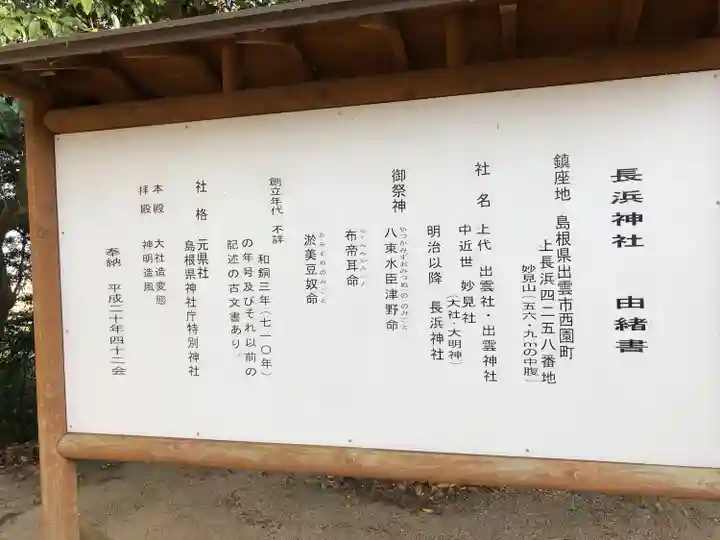 長浜神社　由緒書
鎮座地　島根県出雲市西園町
上長浜四二五八番地
妙見山（五六・九mの中腹）
社名　上代　出雲社・出雲神社
中近世　妙見社
（大社・大明神）
明治以降　長浜神社
御祭神　八束水臣津野命
やつかみずおみつぬのみこと
布帝耳命
淤美豆奴命
おみずぬのみこと
創立年代　不詳
和銅三年（七一〇年）
の年号及びそれ以前の
記述の古文書あり。
社格　元県社
島根県神社庁特別神社
本殿　大社造変態
拝殿　神明造風
奉納　平成二十年四十二会